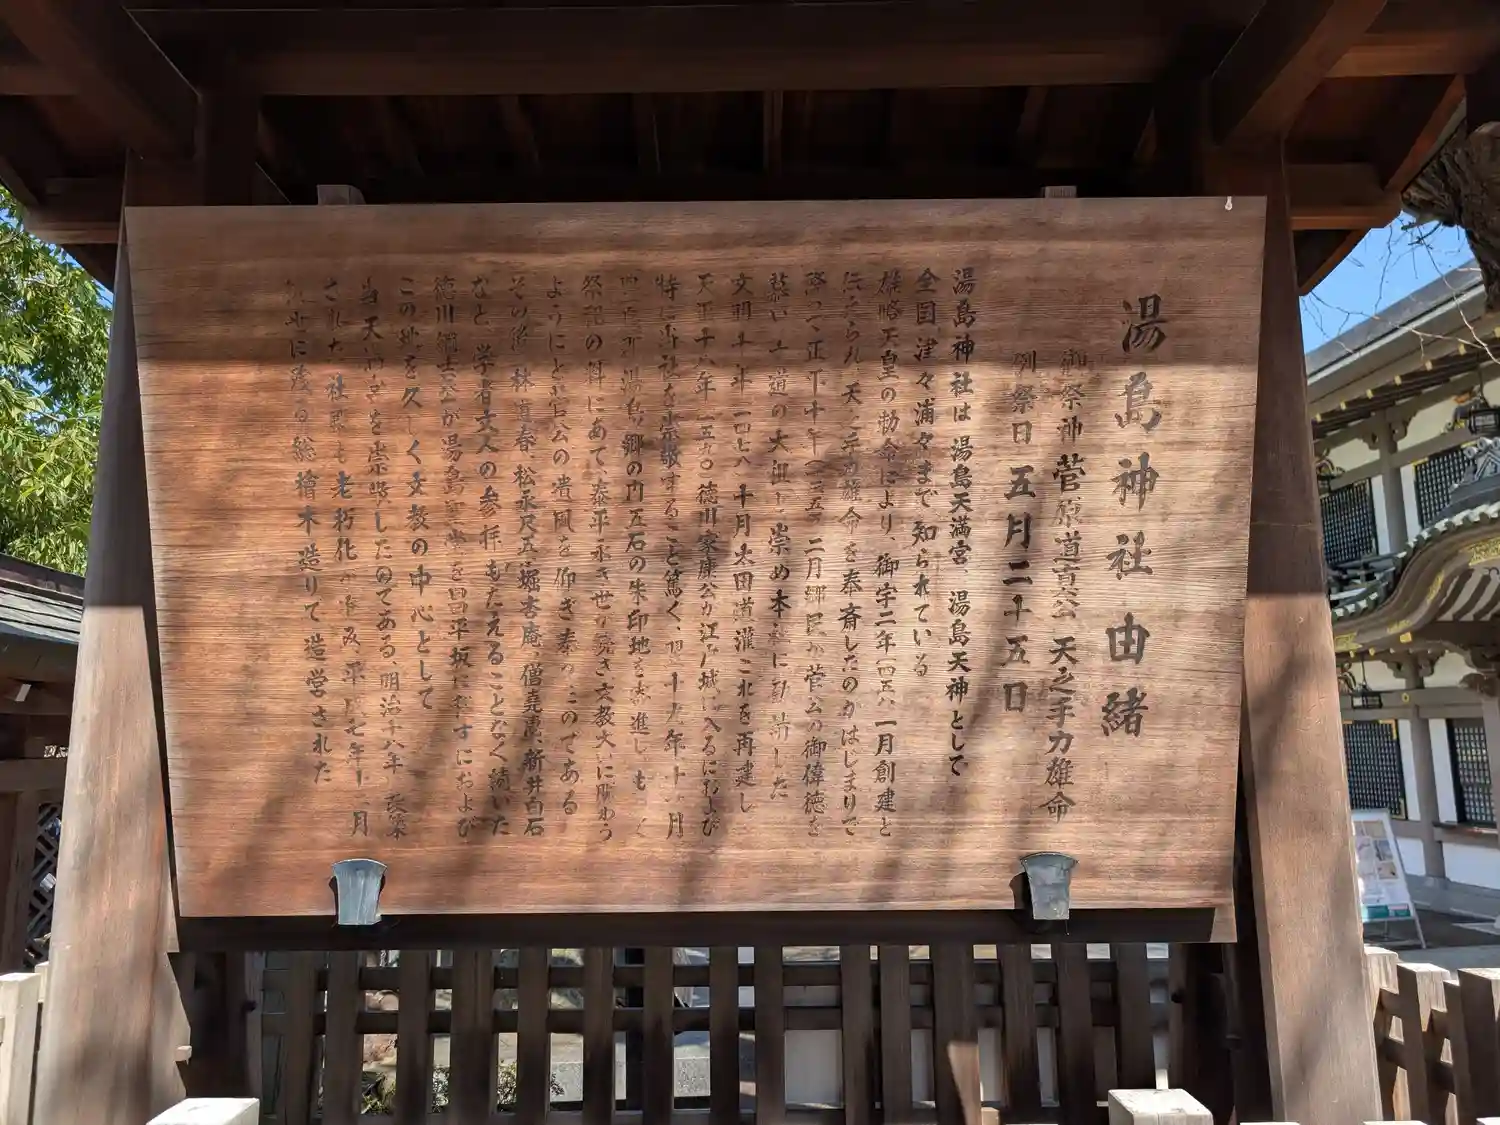 湯島神社由緒
御祭神 菅原道真公 天之手力雄命
例祭日 五月二十五日
湯島神社は 湯島天満宮、湯島天神として
全国、津々浦々まで 知られている
雄略天皇の勅命により、御宇二年(四五八)一月創建と
伝えられ、天之手力雄命を奉斎したのがはじまりで
降って、正平十年(一三五五)二月郷民が菅公の御偉徳を
慕い 文道の大祖と崇め本社に勧請した
文明十年(一四七八)十月太田道灌これを再建し
天正十八年(一五九〇)徳川家康公が江戸城に入るにおよび
特に当社を崇敬すること篤く、翌十九年十一月
豊島郡湯島郷の内五石の朱印地を寄進し、もって
祭祀の料にあて、泰平永き世が続き、文教大いに賑わう
ようにと菅公の遺風を仰ぎ奉ったのである
その後、林道春、松永尺五、堀杏庵、僧堯恵、新井白石
など、学者文人の参拝もたえることなく続いた
徳川綱吉公が湯島聖堂を昌平坂に移すにおよび
この地を久しく文教の中心として
当天満宮を崇敬したのである、明治十八年 改築
された社殿も老朽化が進み 平成七年十二月
後世に残る総檜木造りで造営された